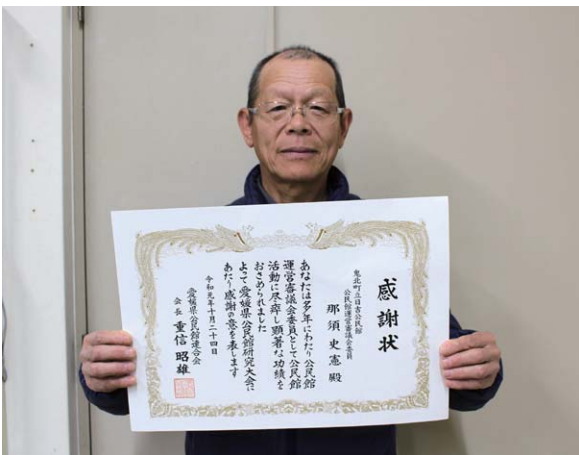 感謝状
鬼北町立日吉公民館
公民館運営審議会委員
那須史憲殿
あなたは多年にわたり公民館
運営審議会委員として公民館
活動に尽瘁し顕著な功績を
おさめられました
よって愛媛県公民館研究大会に
あたり感謝の意を表します
令和元年十月二十四日
愛媛県公民館連合会
会長 重信昭雄